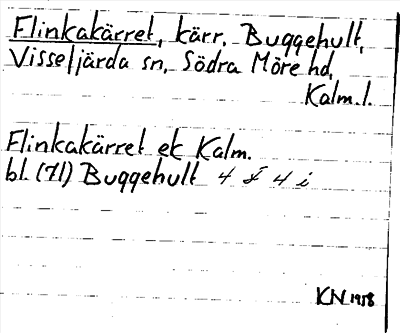 Flinkakärret, kärr. Buggehult,
Vissefjärda sn, Södra Möre hd,
Kalm. l.
Flinkakärret ek Kalm.
bl. (71) Buggehult 4 F 4 i
KN 1958